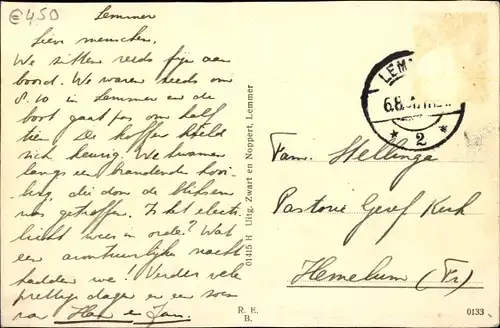 €450
Lemmer
Lieve menschen,
We zitten reeds fijn aan
boord. We waren reeds om
8.10 in Lemmer en de
boot gaat pas om half
tien. De koffer hield
zich keurig. We kwamen
langs een brandende hooi-
berg, die door de bliksem
was getroffen. Is het electr.
licht weer in orde? Wat
een avontuurlijke nacht
hadden we! Verder vele
prettige dagen en een zoen
van Han en Jan.
01415 H Uitg. Zwart en Noppert, Lemmer
R. E.
B.
LEM
6.8
* 2 *
Fam. Stellinga
Pastorie Geref Kerk
Hemelum (Fr)
0133